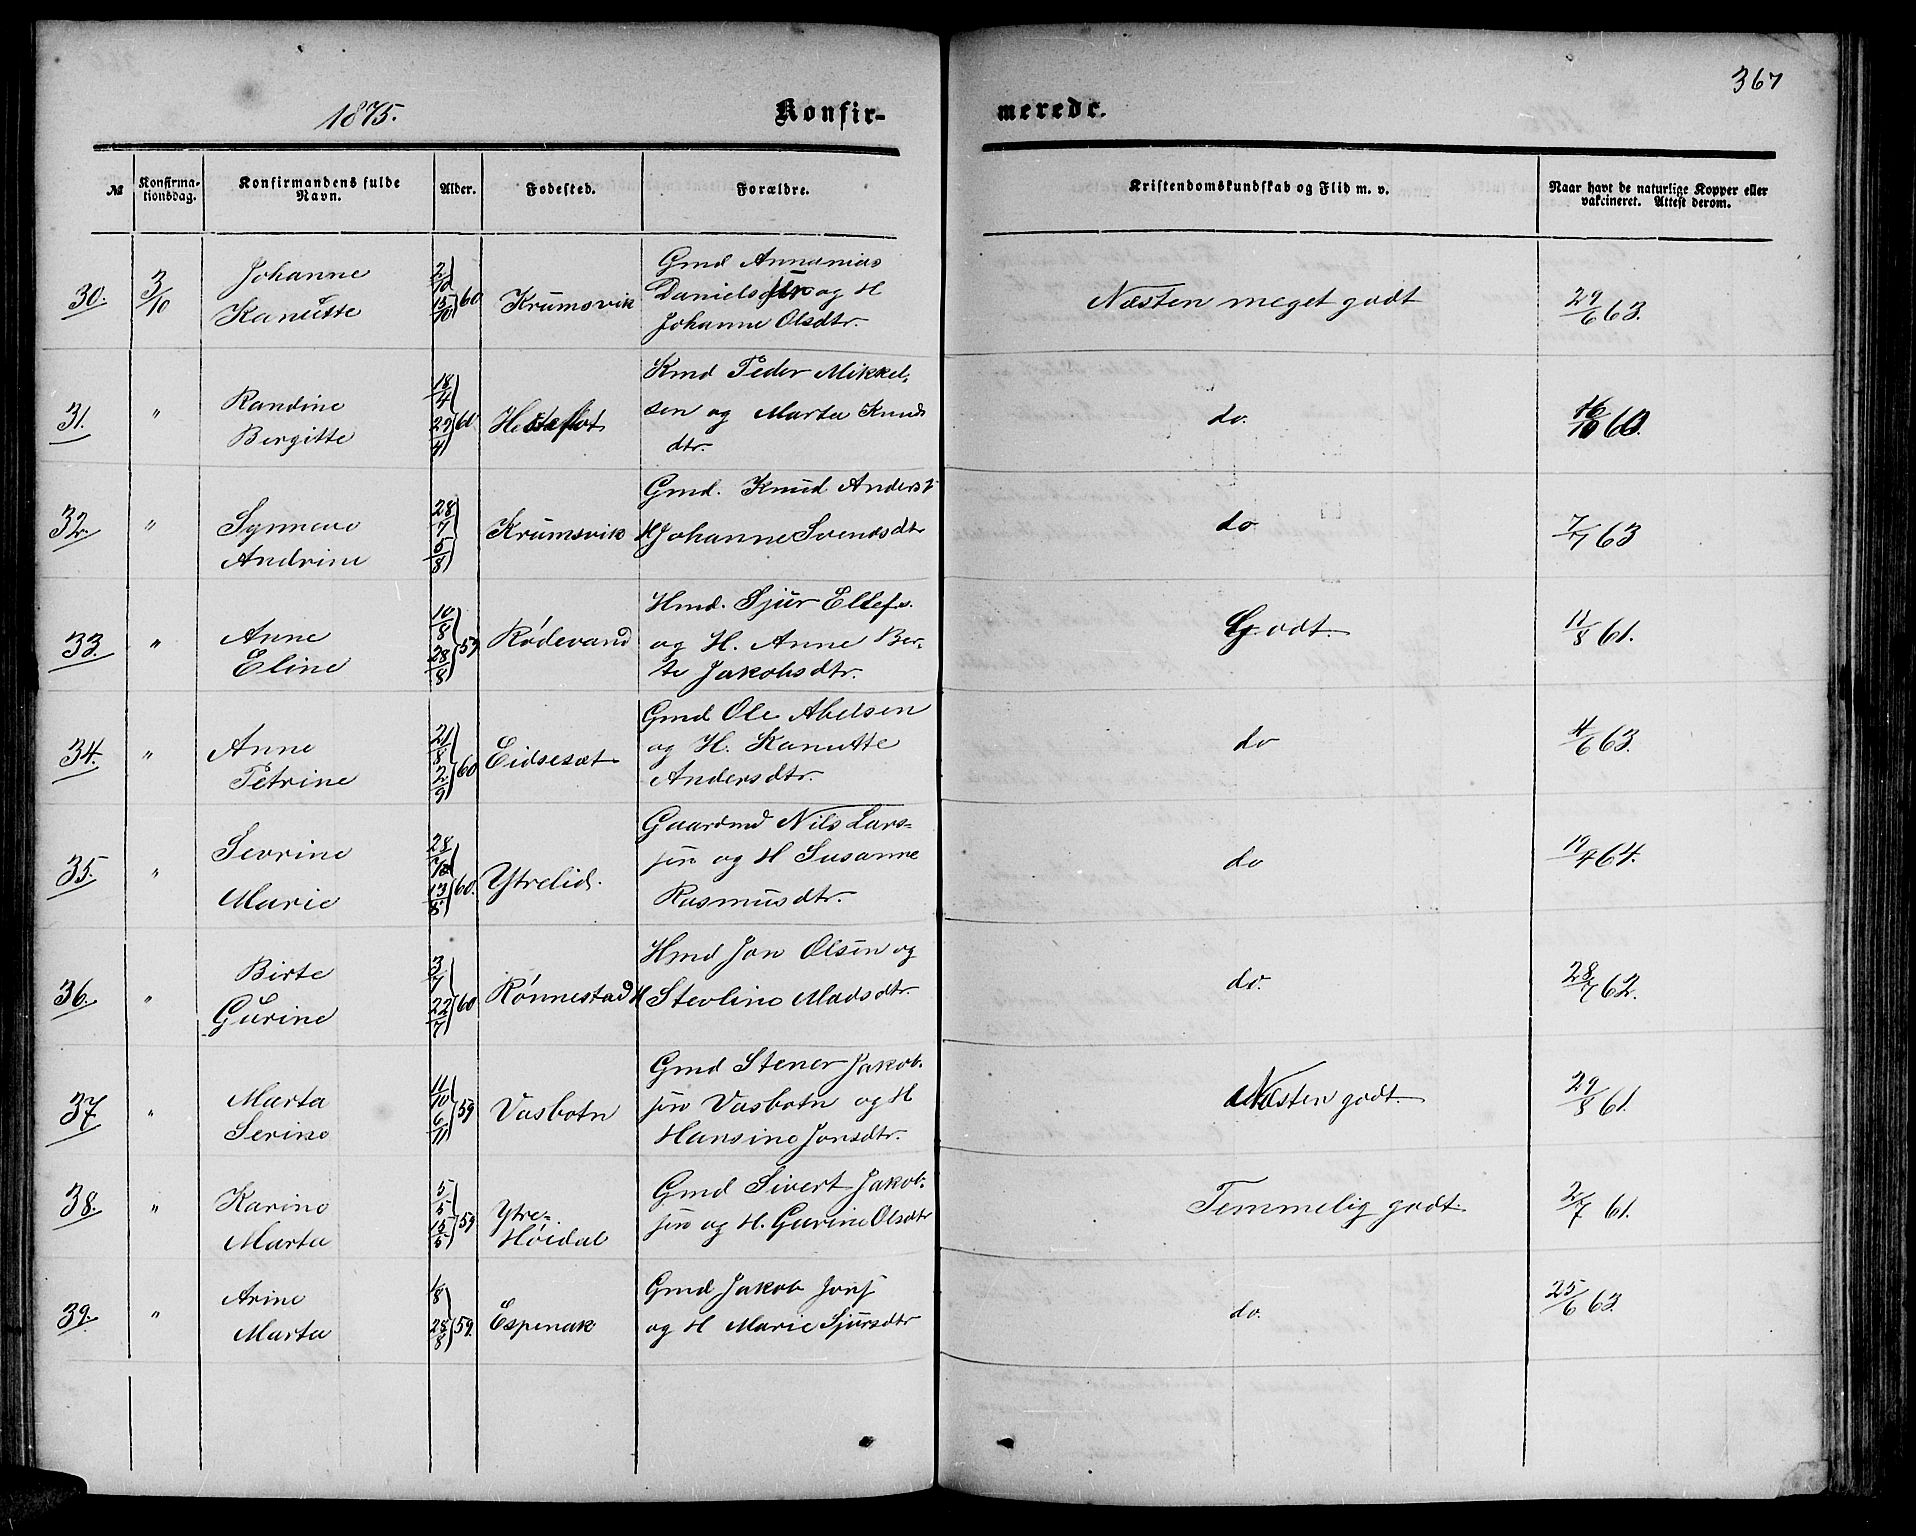 367
1875.
Konfir-
merede.
№
Konfirma-
tionsdag.
Konfirmandens fulde
Navn.
Alder.
Fødested.
Forældre.
Kristendomskundskab og Flid m. v.
Naar havt de naturlige Kopper eller
vakcineret. Attest derom.
30. 3/10 Johanne Kanutte 2/10 15/10 60 Krumsvik
Gmd Annanias
Daniels og H
Johanne Olsdtr.
Næsten meget godt 29/6 63.
31. " Randine Bergitte 18/4 27/4 60
Kmd Peder Mikkel-
sen og Marta Knuds
dtr.
do. 16/10 60.
32. " Synneve Andrine 28/7 5/8 Krumsvik
Gmd. Knud Anders
H Johanne Svendsdtr
do 7/7 63
33. " Anne Eline 10/8 28/8 59 Rødevand
Hmd. Sjur Ellefs.
og H. Anne Ber-
te Jakobsdtr.
Godt. 11/8 61.
34. " Anne Petrine 21/8 2/9 60 Eidseset
Gmd Ole Abelsen
og H. Kanutte
Andersdtr.
do 4/6 63.
35. " Sevrine Marie 28/7 13/8 60. Ytrelid.
Gaardmd Nils Lars-
sen og H Susanne
Rasmusdtr.
do 19/4 64.
36. " Birte Gurine 3/7 22/7 60 Rønnestad
Hmd Jon Olsen og
H Stevline Madsdtr.
do. 28/7 62.
37 " Marta Serine 11/10 6/11 59 Vasbotn
Gmd Stener Jakob-
sen Vasbotn og H
Hansine Jonsdtr.
Næsten godt. 29/8 61.
38. " Karine Marta 5/5 15/5 59 Ytre-
Høidal
Gmd Sivert Jakob-
sen og H. Gurine Olsdtr
Temmelig godt. 2/7 61.
39. " Arine Marta 1/8 28/8 59. Espenak
Gmd Jakob Jons
og H Marie Sjursdtr
do. 25/6 63.